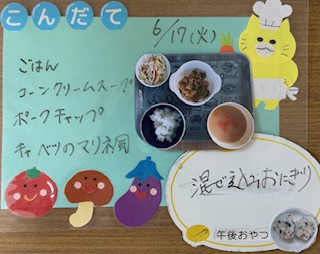 こんだて
6/17(火)
ごはん
コーンクリームスープ
ポークチャップ
キャベツのマリネ風
混ぜ込みおにぎり
午後おやつ